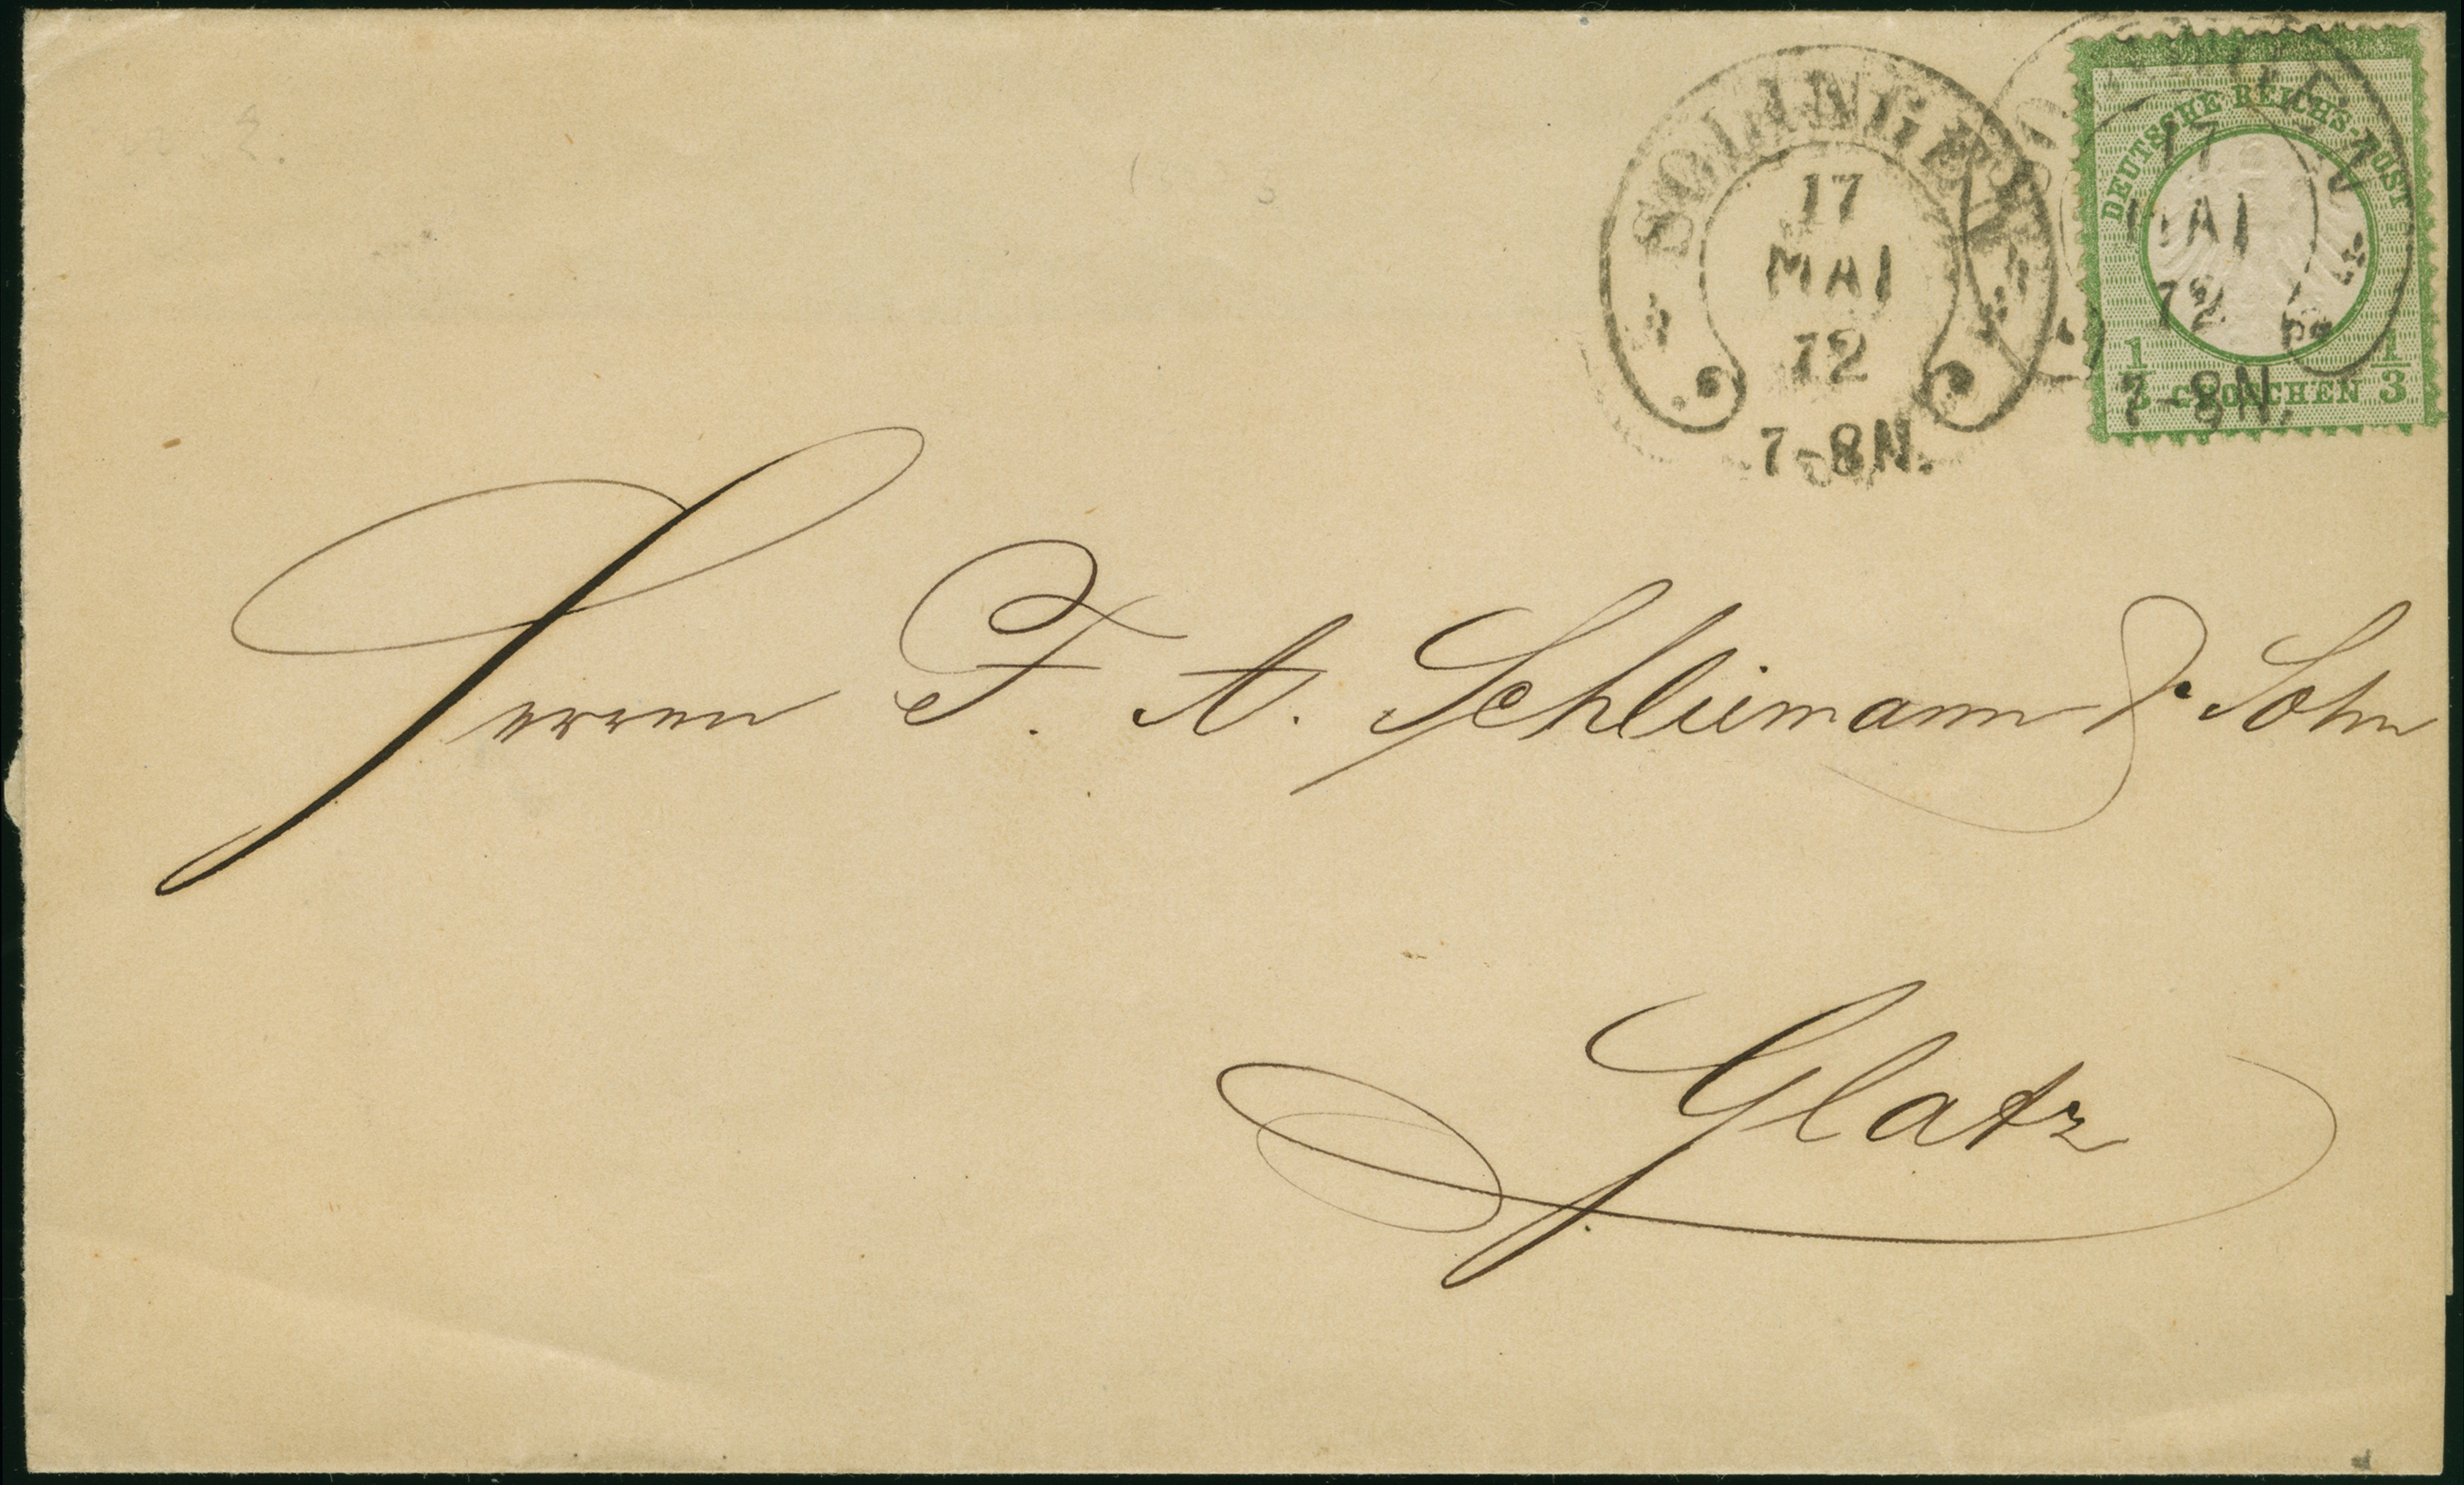 SOLINGEN
17
MAI
72
7-8N.
DEUTSCHE REICHS-POST
17
MAI
72
7-8N.
1/3 GROSCHEN 1/3
Herren F. A. Schliemann & Sohn
Glatz